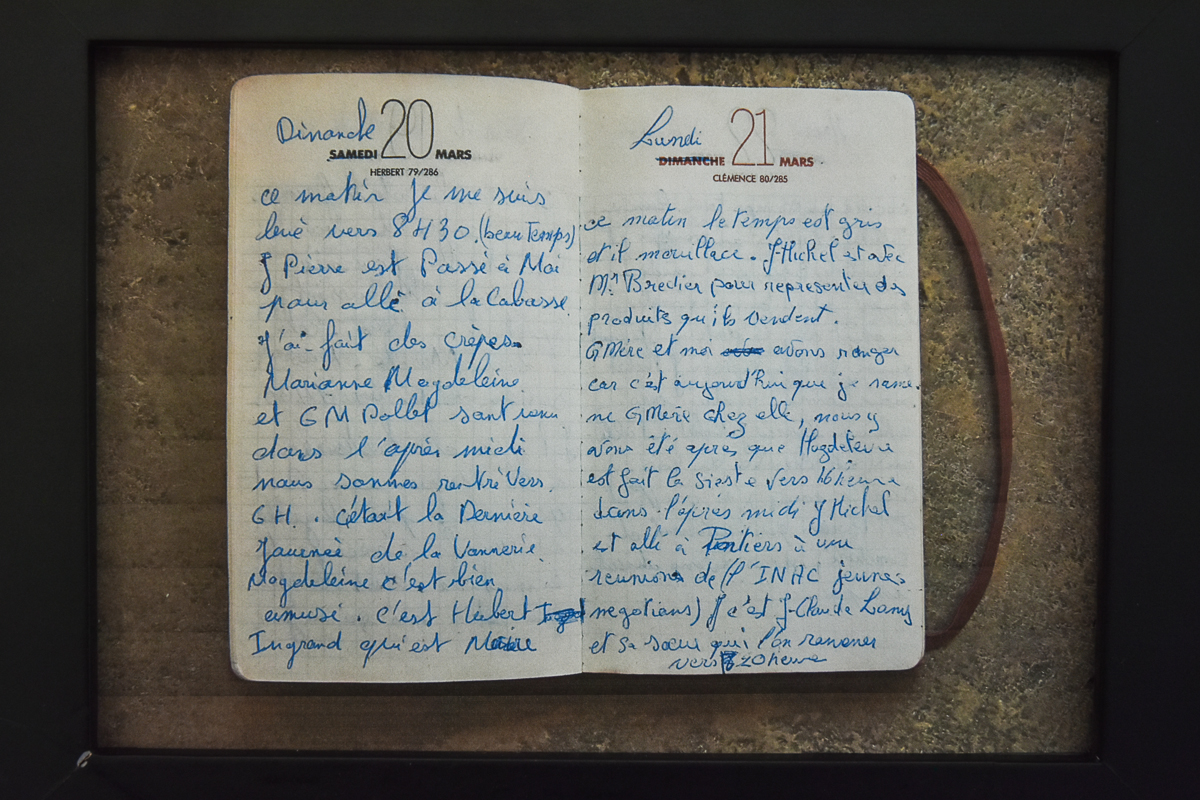 Dimanche 20
SAMEDI MARS
HERBERT 79/286
ce matin je me suis
levé vers 8H30. (beau Temps)
J Pierre est Passé à Moi
pour allé à la Cabasse
J'ai fait des crèpes
Marianne Magdeleine
et GM Pollet sont venu
dans l'après midi
nous sommes rentré Vers
6H. c'était la Dernière
Journeé de la Vannerie
Magdeleine c'est bien
amusé. c'est Hubert
Ingrand qui est Maire
Lundi 21
DIMANCHE MARS
CLÉMENCE 80/285
ce matin le temps est gris
et il mouillace. J-Michel et avec
Mr Bredier pour representer des
produits qu'ils vendent.
GMère et moi avons ranger
car c'est aujourd'hui que je rame
ne GMère chez elle, nous y
avons été après que Magdeleine
est fait la sieste vers 16 heure
dans l'après midi J Michel
est allé à Poitiers à une
reunion de (l'INAC jeunes
negotians) J-Claude Lamy
et sa sœur qui l'on ramener
vers 20 heure